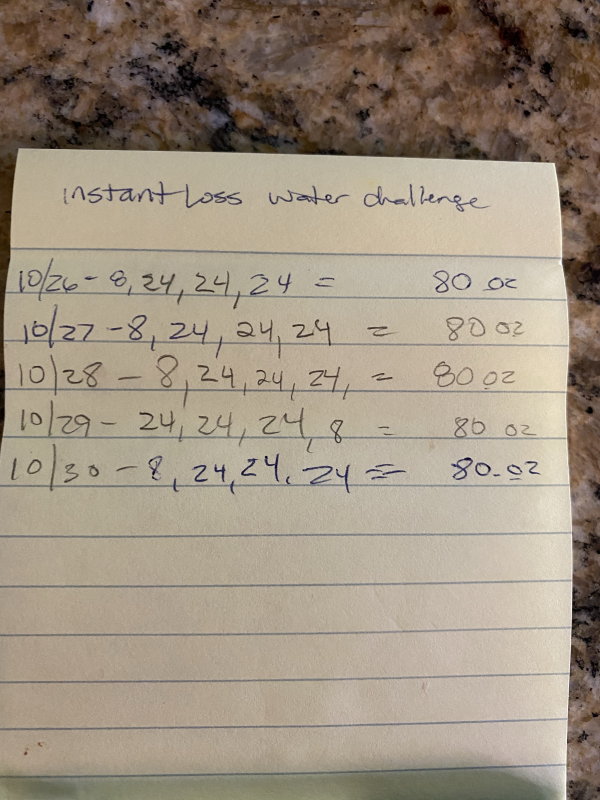 instant loss water challenge
10/26 - 8, 24, 24, 24 = 80 oz
10/27 - 8, 24, 24, 24 = 80 oz
10/28 - 8, 24, 24, 24, = 80 oz
10/29 - 24, 24, 24, 8 = 80 oz
10/30 - 8, 24, 24. 24 = 80.oz